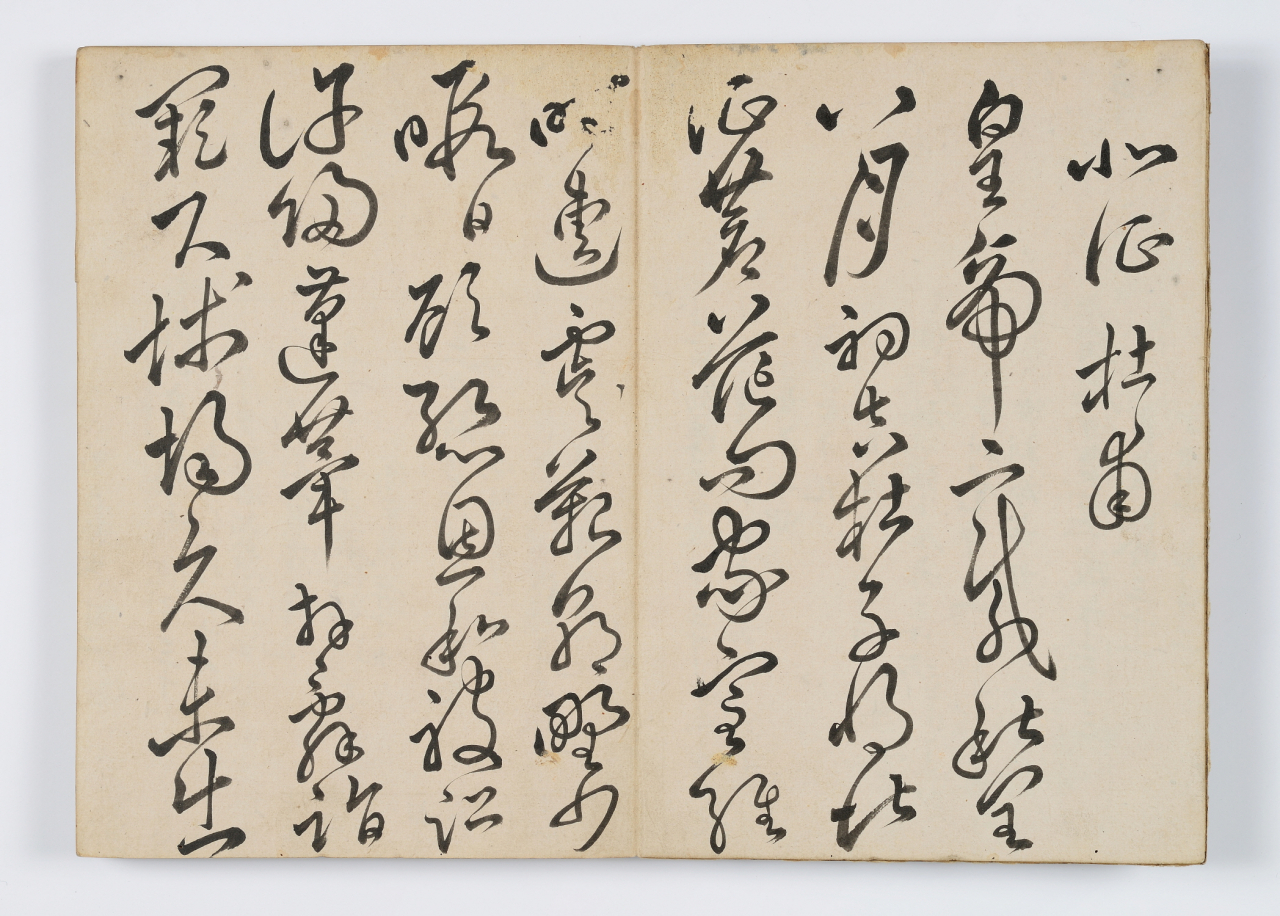 北征 杜甫
皇帝二載秋閏
八月初吉杜子將北
征蒼茫問家室維
時遭虞艱朝野少
暇日顧慙恩私被詔
許歸蓬蓽拜辭詣
闕下怵惕久未出